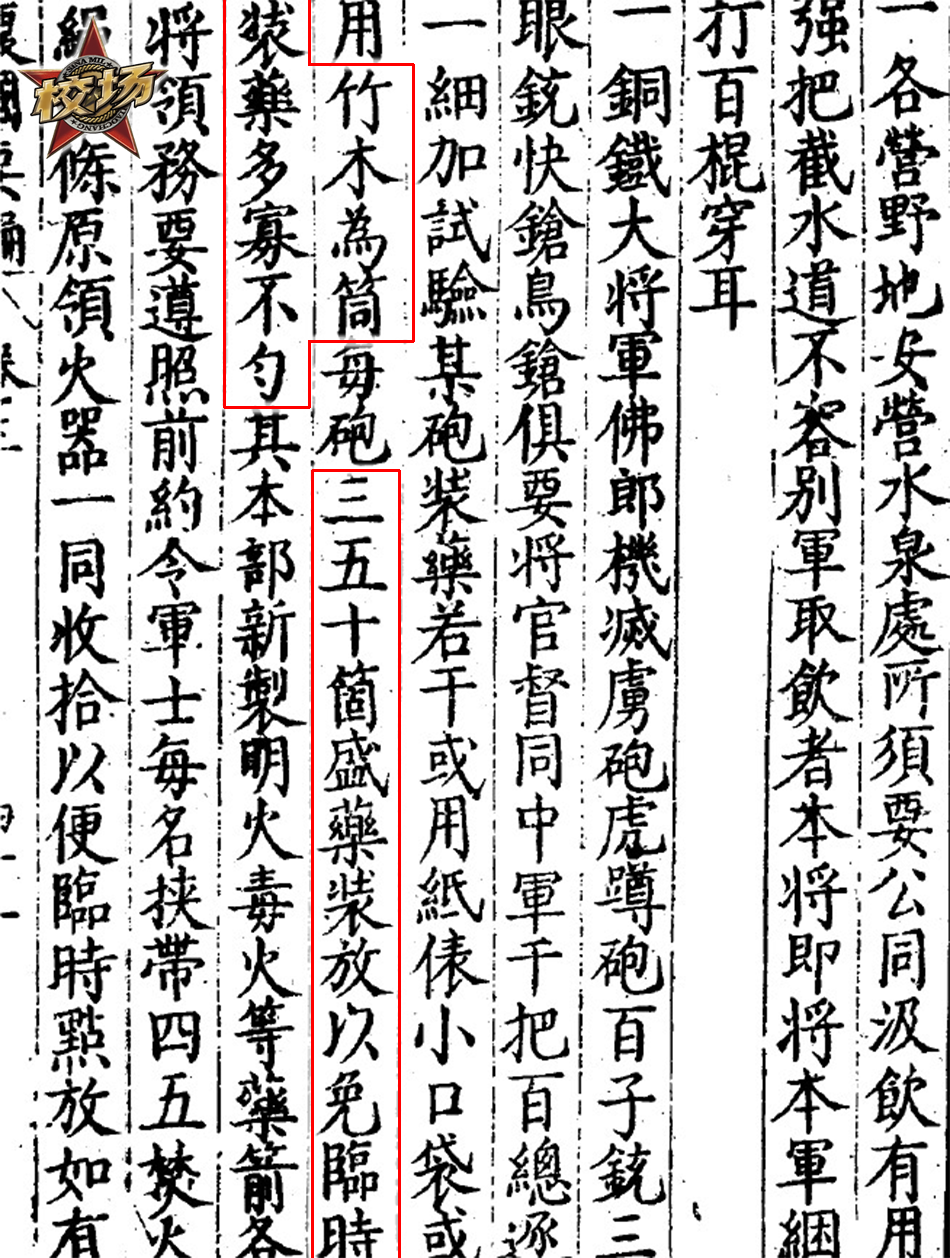 一各營野地安營水泉處所須要公同汲飲有用
强把截水道不容別軍取飲者本将即将本軍綑
打百棍穿耳
一銅鐵大将軍佛郎機滅虜砲虎蹲砲百子銃三
眼銃快鎗鳥鎗俱要将官督同中軍千把百總逐
一細加試驗某砲装藥若干或用紙俵小口袋或
用竹木為筒每砲三五十箇盛藥装放以免臨時
装藥多寡不勻其本部新製明火毒火等藥箭各
将領務要遵照前約令軍士每名挾帶四五焚火
條原領火器一同收拾以便臨時點放如有
校场